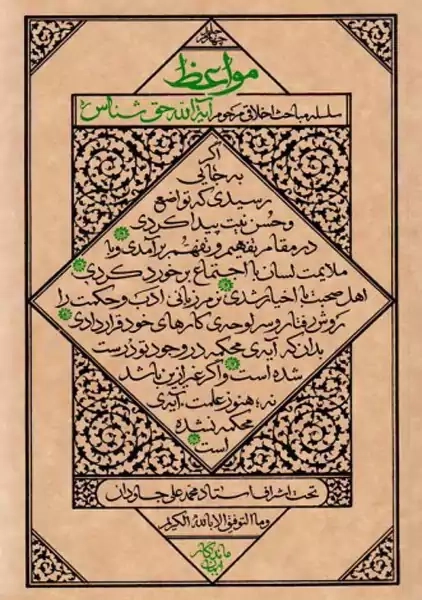 چهارم
مواعظ
سلسله مباحث اخلاقی مرحوم آیة الله حق شناس ره
اگر
به جایی
رسیدی که تواضع
و حسن نیت پیدا کردی
در مقام تفهیم و تفهم برآمدی و با
ملایمت لسان با اجتماع برخورد کردی
اهل صحبت با اخیار شدی نرم زبانی ادب و حکمت را
روش رفتار و سرلوحه‌ی کارهای خود قرار دادی
بدان که آیه‌ی محکمه در وجود تو درست
شده است و اگر غیر از این باشد
نه؛ هنوز علمت، آیه‌ی
محکمه نشده
است
تحت اشراف استاد محمد علی جاودان
وما التوفیق الا بالله الکریم